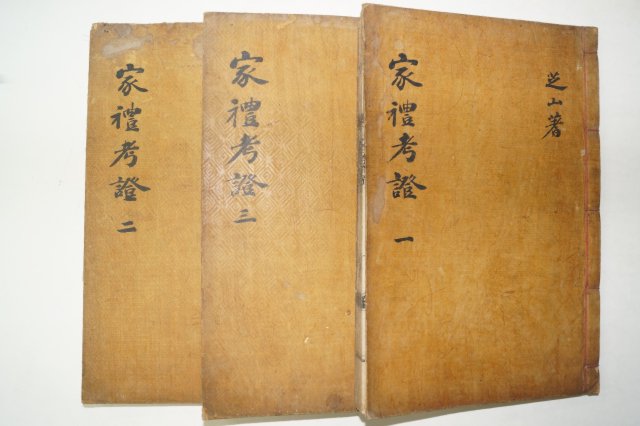 家禮考證 二
家禮考證 三
家禮考證 一
芝山著